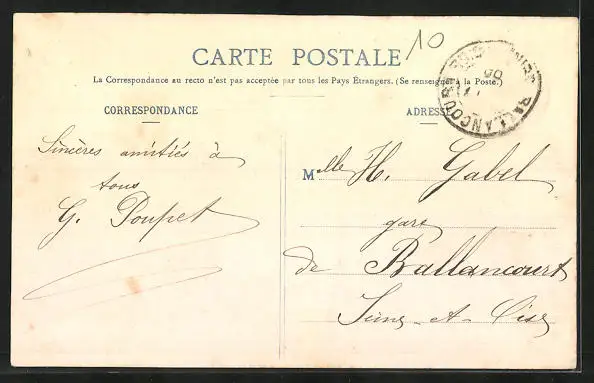 10
CARTE POSTALE
La Correspondance au recto n'est pas acceptée par tous les Pays Étrangers. (Se renseigner à la Poste.)
CORRESPONDANCE
ADRESSE
Sincères amitiés à
tous
G. Poupet
Mlle H. Gabel
gare
de Ballancourt
Seine-et-Oise
BALLANCOURT